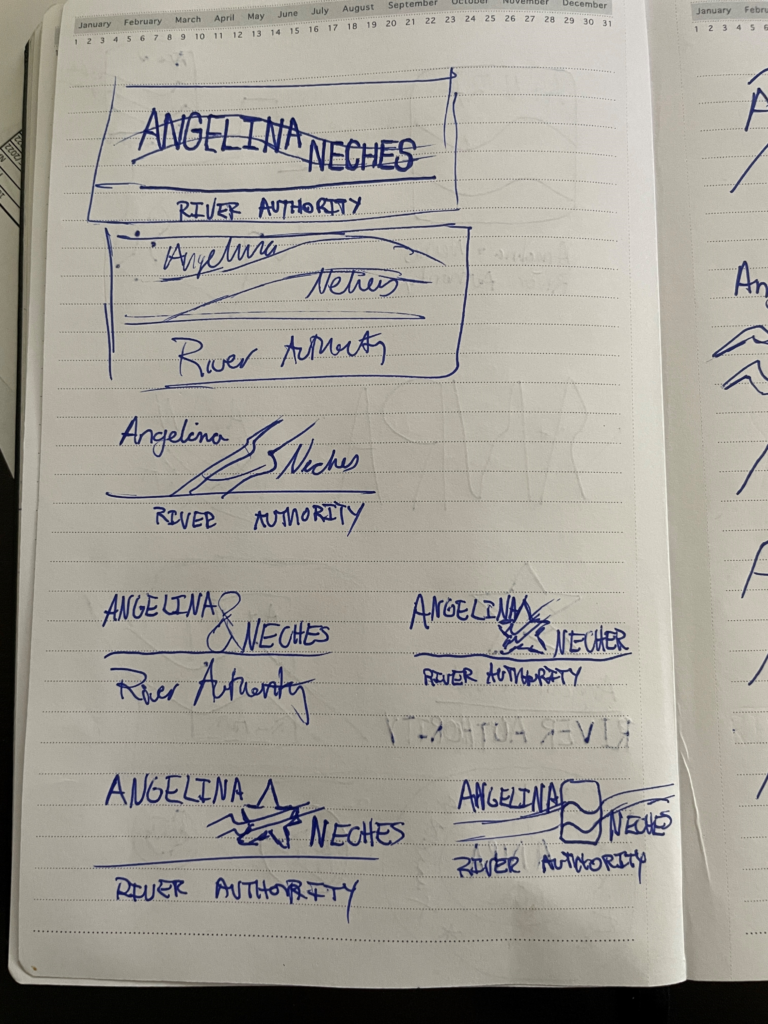 January February March April May June July August September October November December
1 2 3 4 5 6 7 8 9 10 11 12 13 14 15 16 17 18 19 20 21 22 23 24 25 26 27 28 29 30 31
January
1 2 3 4 5
ANGELINA
NECHES
RIVER AUTHORITY
Angelina
Neches
River Authority
Angelina
Neches
RIVER AUTHORITY
ANGELINA
NECHES
River Authority
ANGELINA
NECHER
RIVER AUTHORITY
ANGELINA
NECHES
RIVER AUTHORITY
ANGELINA
NECHES
RIVER AUTHORITY